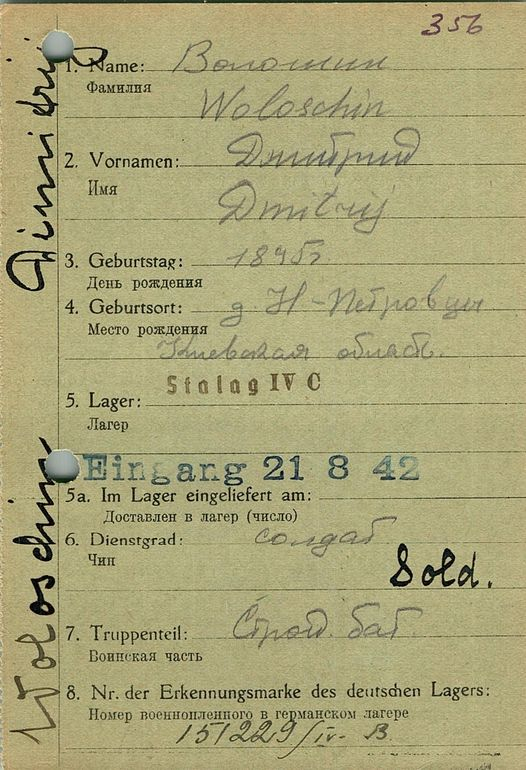 356
Woloschin Dimitrij
1. Name: Волошин
Фамилия
Woloschin
2. Vornamen: Дмитрий
Имя
Dmitrij
3. Geburtstag: 1895г
День рождения
4. Geburtsort: д. Н-Петровцы
Место рождения
Киевская область.
Stalag IV C
5. Lager:
Лагерь
Eingang 21 8 42
5a. Im Lager eingeliefert am:
Доставлен в лагер (число)
6. Dienstgrad: солдат
Чин
Sold.
7. Truppenteil: Строй. бат.
Воинская часть
8. Nr. der Erkennungsmarke des deutschen Lagers:
Номер военнопленного в германском лагере
151229/IV-B